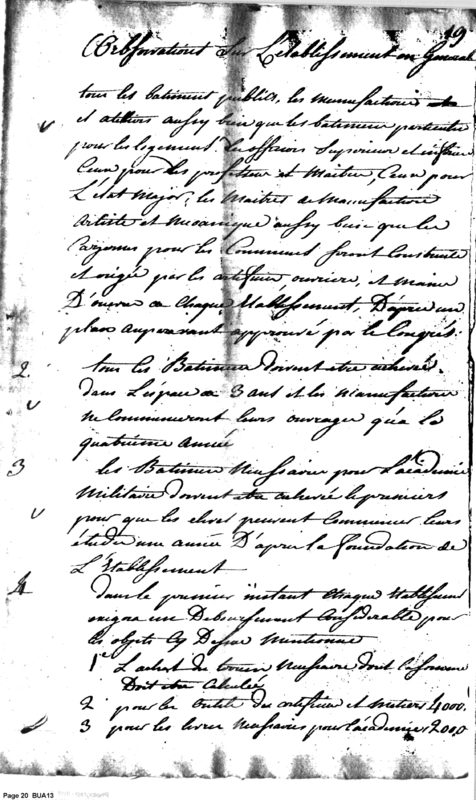 19
Observations Sur L'établissement en General
tous les batiment publics, les manufacturies
et atteliers aussy bien que les batimens particulier
pour les logement des officiers Superieur et inferieur
Ceux pour les professeur et Maitre, Ceux pour
L'état Major, les Maitres de Manufacture
Artiste et Mecanique aussy bien que les
Cazernes pour les Communs seront Construite
et erigée par les artifice ouvriers, et mains
D'œuvre de Chaque Etablissement, D'aprés un
plan auparavant approuvé par le Congrés.
2 tous les Batimens doivent etre achevée
dans L'éspace de 3 ans et les manufacture
ne Commenceront leurs ouvrages qu'a la
quatrieme année
3 les Batimens Nessaires pour L'académie
Militaire doivent etre achevée le premiers
pour que les eleves peuvent Commencer leurs
études une année D'aprés la foundation de
L'Etablissement
4 dans le premier instant Chaque Etablissement
exigera un Deboursement Considerable pour
les objets Cy Dessue Mentionné
1° L'achat du terrein Nessaire dont la somme
Doit etre Calculée
2 pour les Outils des artificier et metiers 4000.
3 pour les livres Nessaires pour L'académie 2000
Page 20 BUA13